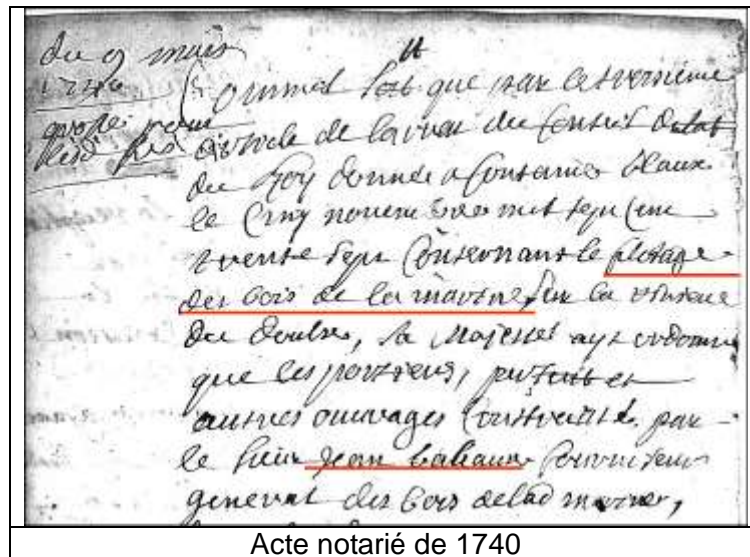 du 9 mars
1740
Comme soit que par le troisieme
article de larrest du Conseil destat
du Roy donné a fontaine bleaux
le Cinq novembre mil sept Cent
trente sept Consernant le flotage
des bois de la marine sur la riviere
du Doubs, sa Majesté ayt ordonné
que les portieres, pertuis et
autres ouvrages Construits par
le sieur Jean babaud fournisseur
general des bois de lad marine,
Acte notarié de 1740